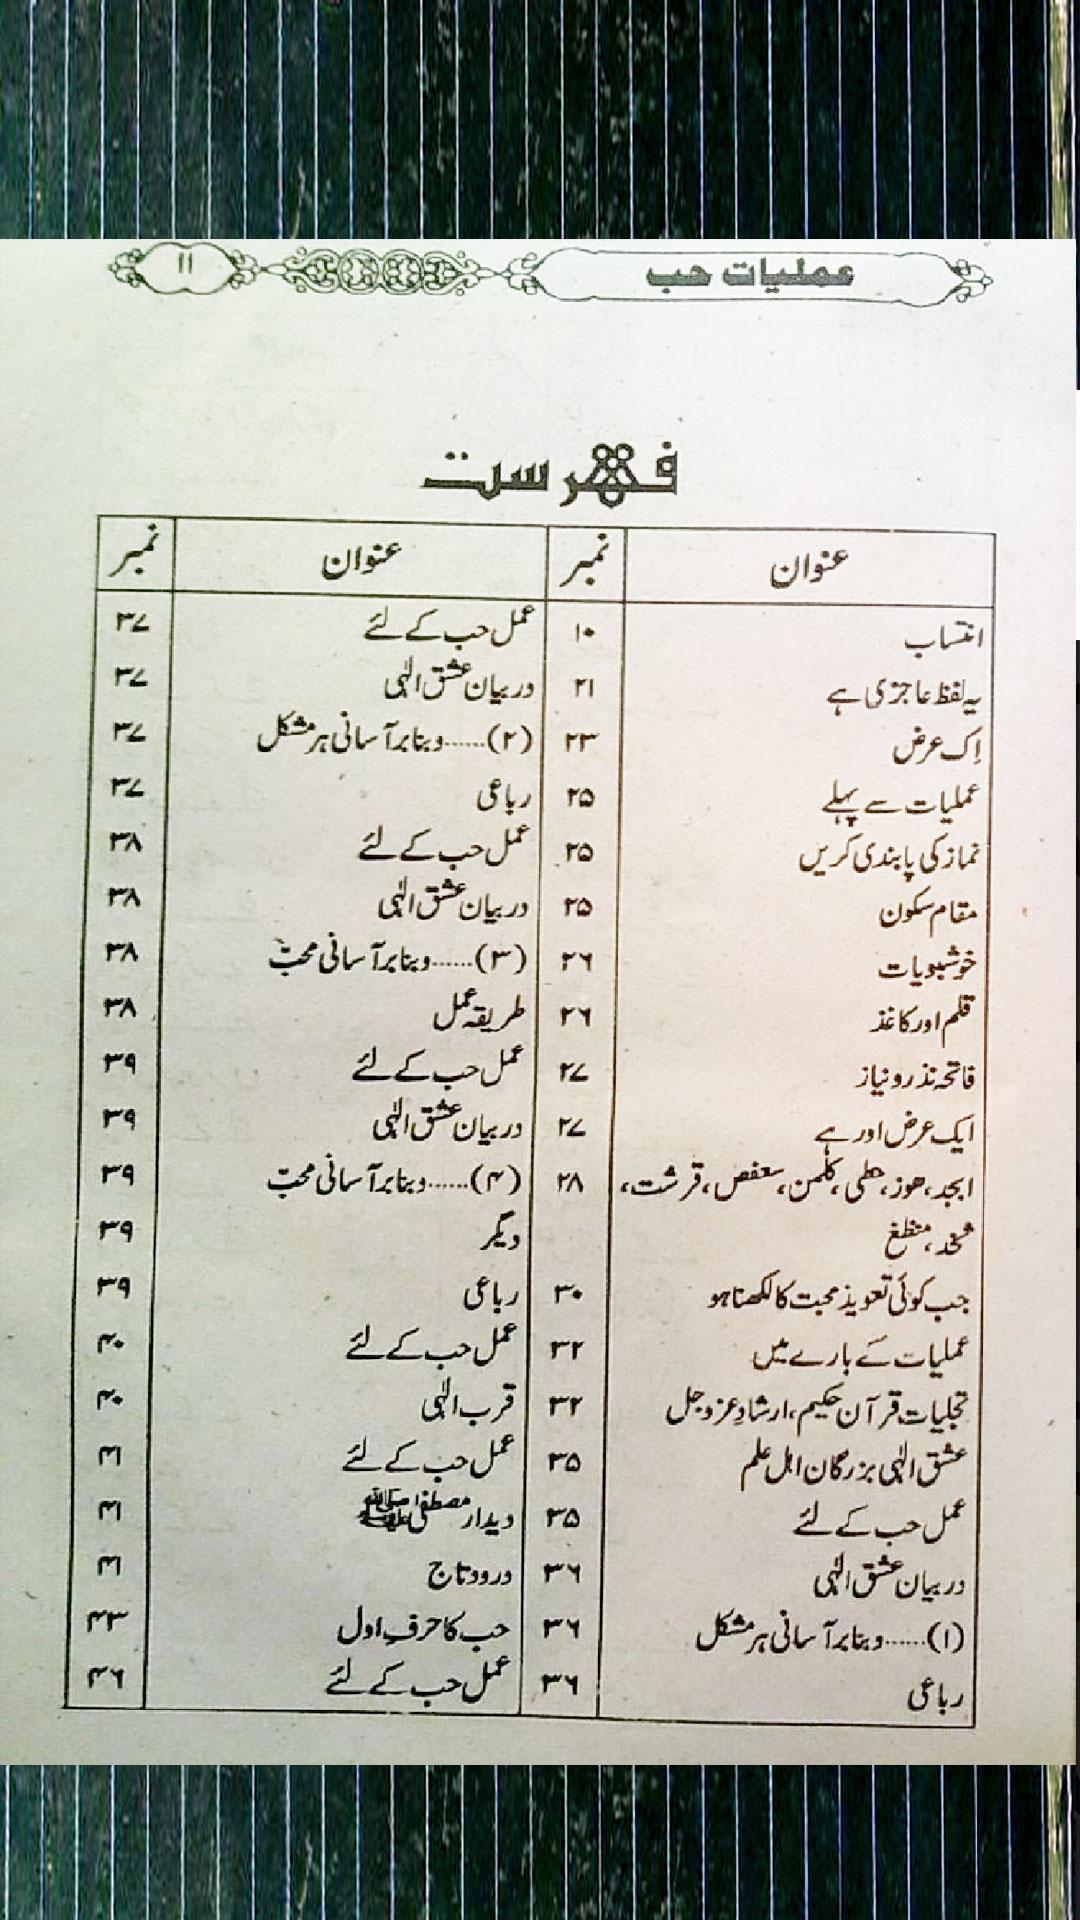 عملیات حب ۱۱
فہرست
عنوان نمبر عنوان نمبر
انتساب ۱۰ عمل حب کے لئے ۳۷
یہ لفظ عاجزی ہے ۲۱ در بیان عشق الٰہی ۳۷
اِک عرض ۲۳ (۲)......و بنا بر آسانی ہر مشکل ۳۷
عملیات سے پہلے ۲۵ رباعی ۳۷
نماز کی پابندی کریں ۲۵ عمل حب کے لئے ۳۸
مقام سکون ۲۵ در بیان عشق الٰہی ۳۸
خوشبویات ۲۶ (۳)......و بنا بر آسانی محبّ ۳۸
قلم اور کاغذ ۲۶ طریقہ عمل ۳۸
فاتحہ نذر و نیاز ۲۷ عمل حب کے لئے ۳۹
ایک عرض اور ہے ۲۷ در بیان عشق الٰہی ۳۹
ابجد، ھوز، حطی، کلمن، سعفص، قرشت، ۲۸ (۴)......و بنا بر آسانی محبّ ۳۹
ثخذ، ضظغ دیگر ۳۹
جب کوئی تعویذ محبت کا لکھنا ہو ۳۰ رباعی ۳۹
عملیات کے بارے میں ۳۲ عمل حب کے لئے ۴۰
تجلیات قرآن حکیم، ارشادِ عزوجل ۳۲ قرب الٰہی ۴۰
عشق الٰہی بزرگان اہل علم ۳۵ عمل حب کے لئے ۴۱
عمل حب کے لئے ۳۵ دیدار مصطفیٰ ﷺ ۴۱
در بیان عشق الٰہی ۳۶ درود تاج ۴۱
(۱)......و بنا بر آسانی ہر مشکل ۳۶ حب کا حرفِ اول ۴۳
رباعی ۳۶ عمل حب کے لئے ۴۶